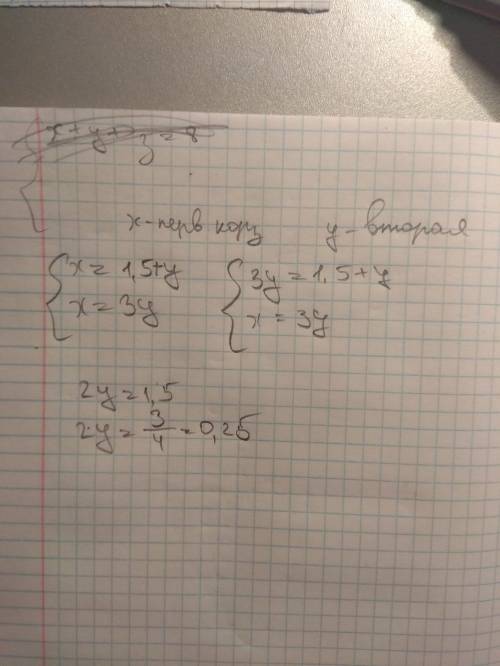 x + y + z = 8
x - перв корз y - вторая
x = 1,5 + y 3y = 1,5 + y
x = 3y x = 3y
2y = 1,5
2y = 3/4 = 0,25